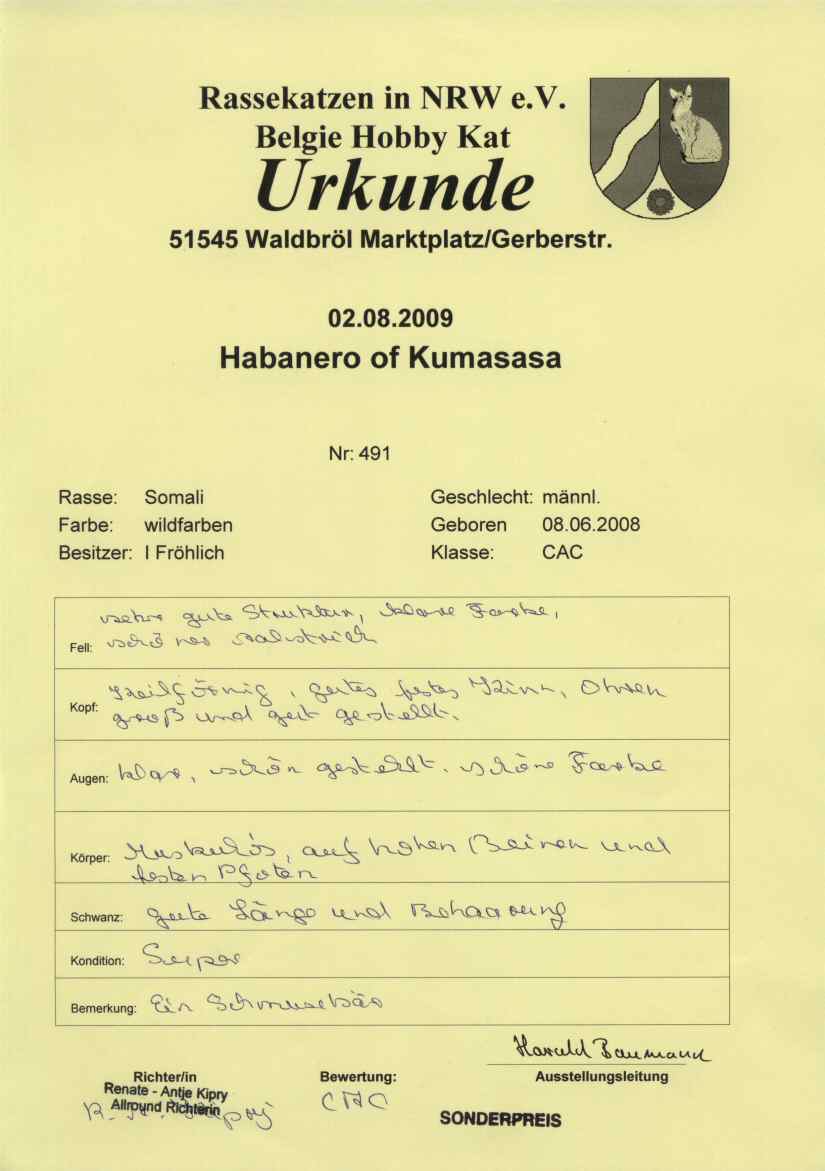 Rassekatzen in NRW e.V.
Belgie Hobby Kat
Urkunde
51545 Waldbröl Marktplatz/Gerberstr.
02.08.2009
Habanero of Kumasasa
Nr: 491
Rasse: Somali Geschlecht: männl.
Farbe: wildfarben Geboren 08.06.2008
Besitzer: I Fröhlich Klasse: CAC
sehr gute Struktur, klare Farbe,
Fell: schönes Aalstrich
Keilförmig, gutes festes Kinn, Ohren
Kopf: groß und gut gestellt.
Augen: klar, schön gestellt. schöne Farbe
Körper: Muskulös, auf hohen Beinen und
festen Pfoten
Schwanz: gute Länge und Behaarung
Kondition: Super
Bemerkung: Ein Schmusebär
Harald Baumann
Richter/in Bewertung: Ausstellungsleitung
Renate - Antje Kipry
Allround Richterin
CAC
SONDERPREIS